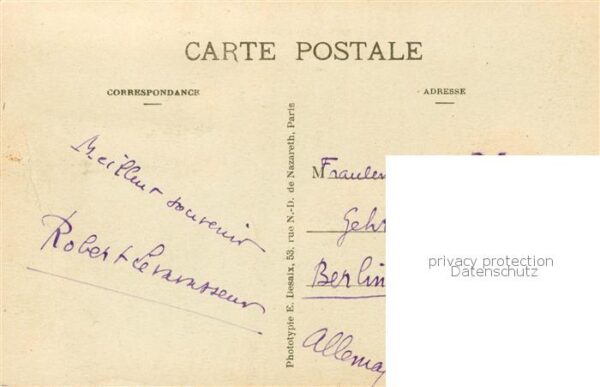 CARTE POSTALE
CORRESPONDANCE
ADRESSE
Meilleur souvenir
Robert Levavasseur
Phototypie E. Desaix, 53, rue N.-D. de Nazareth, Paris
M Fraulen
Gehr
Berlin
Allema
privacy protection
Datenschutz